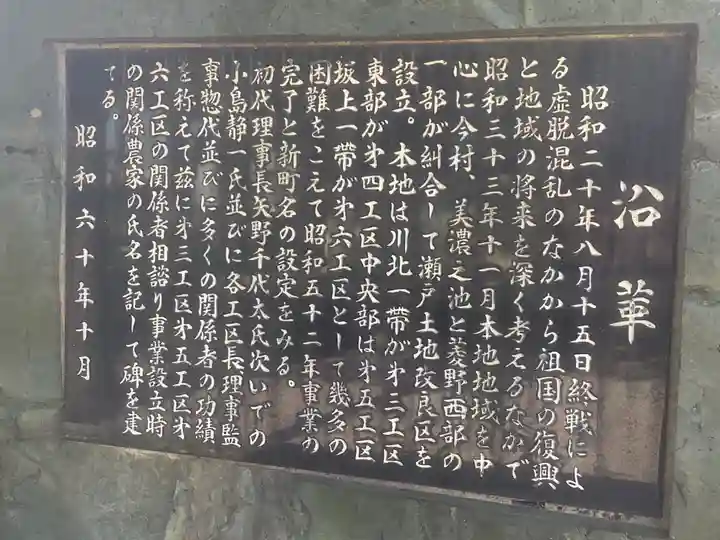 沿革
昭和二十年八月十五日終戦によ
る虚脱混乱のなかから祖国の復興
と地域の将来を深く考えるなかで
昭和三十三年十一月本地地域を中
心に今村、美濃之池と菱野西部の
一部が糾合して瀬戸土地改良区を
設立。本地は川北一帯が㐧三工区
東部が㐧四工区中央部は㐧五工区
坂上一帯が㐧六工区として幾多の
困難をこえて昭和五十二年事業の
完了と新町名の設定をみる。
初代理事長矢野千代太氏次いでの
小島静一氏並びに各工区長理事監
事惣代並びに多くの関係者の功績
を称えて茲に㐧三工区㐧五工区㐧
六工区の関係者相諮り事業設立時
の関係農家の氏名を記して碑を建
てる。
昭和六十年十月